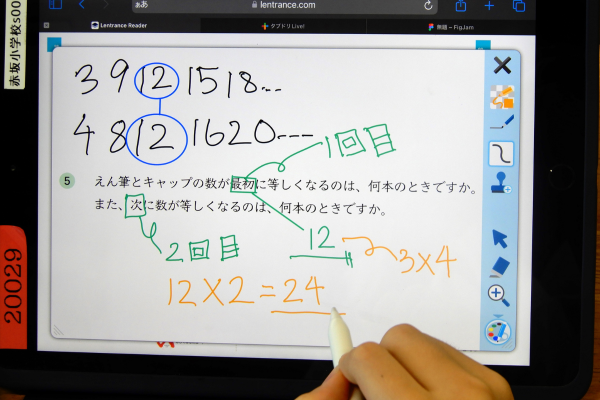 ああ
lentrance.com
Lentrance Reader
タブドリLive!
無題 – FigJam
赤坂小学校s00
20029
3 9 12 15 18...
4 8 12 16 20---
1回目
5 えん筆とキャップの数が最初に等しくなるのは、何本のときですか。
また、次に数が等しくなるのは、何本のときですか。
2回目
12
3×4
12×2=24